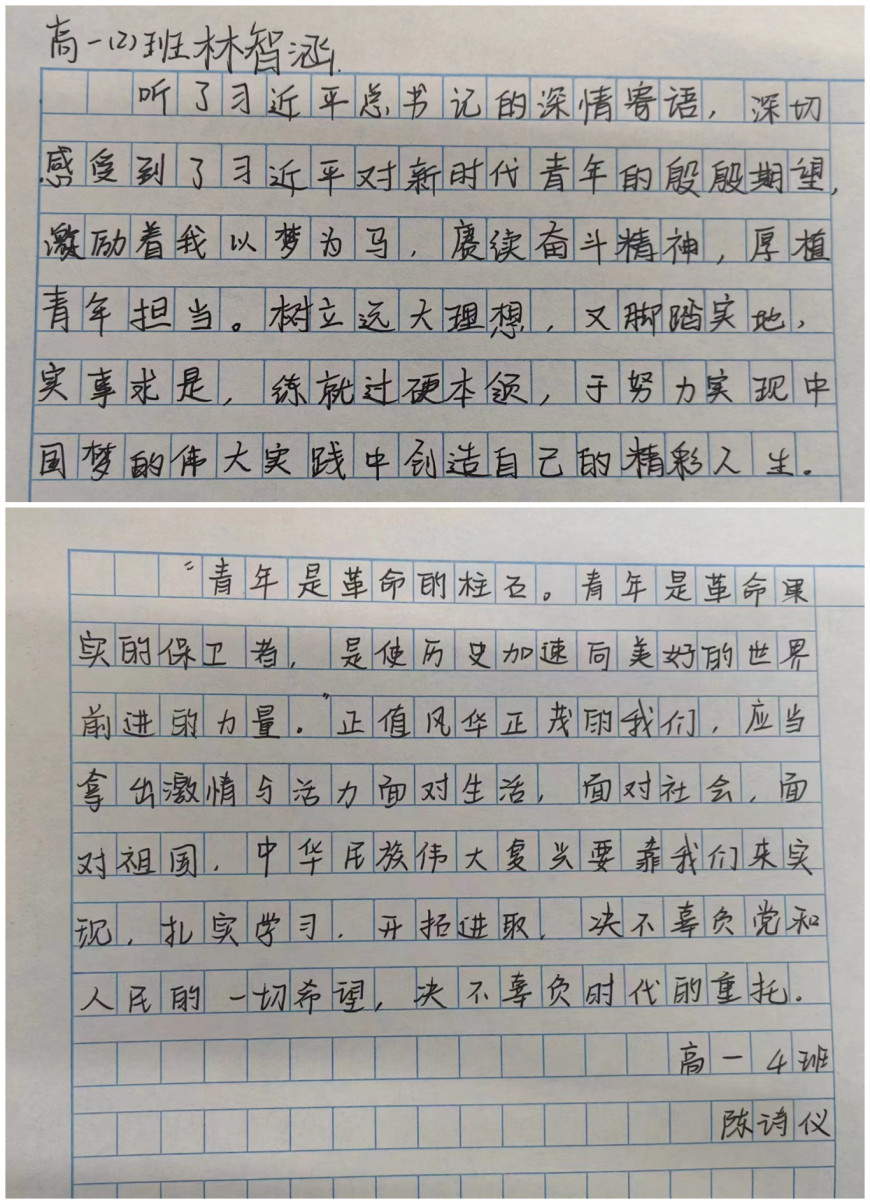 高一(2)班林智涵
听了习近平总书记的深情寄语，深切
感受到了习近平对新时代青年的殷殷期望，
激励着我以梦为马，赓续奋斗精神，厚植
青年担当。树立远大理想，又脚踏实地，
实事求是，练就过硬本领，于努力实现中
国梦的伟大实践中创造自己的精彩人生。
“青年是革命的柱石。青年是革命果
实的保卫者，是使历史加速向美好的世界
前进的力量。”正值风华正茂的我们，应当
拿出激情与活力面对生活，面对社会，面
对祖国，中华民族伟大复兴要靠我们来实
现，扎实学习，开拓进取，决不辜负党和
人民的一切希望，决不辜负时代的重托。
高一4班
陈诗仪